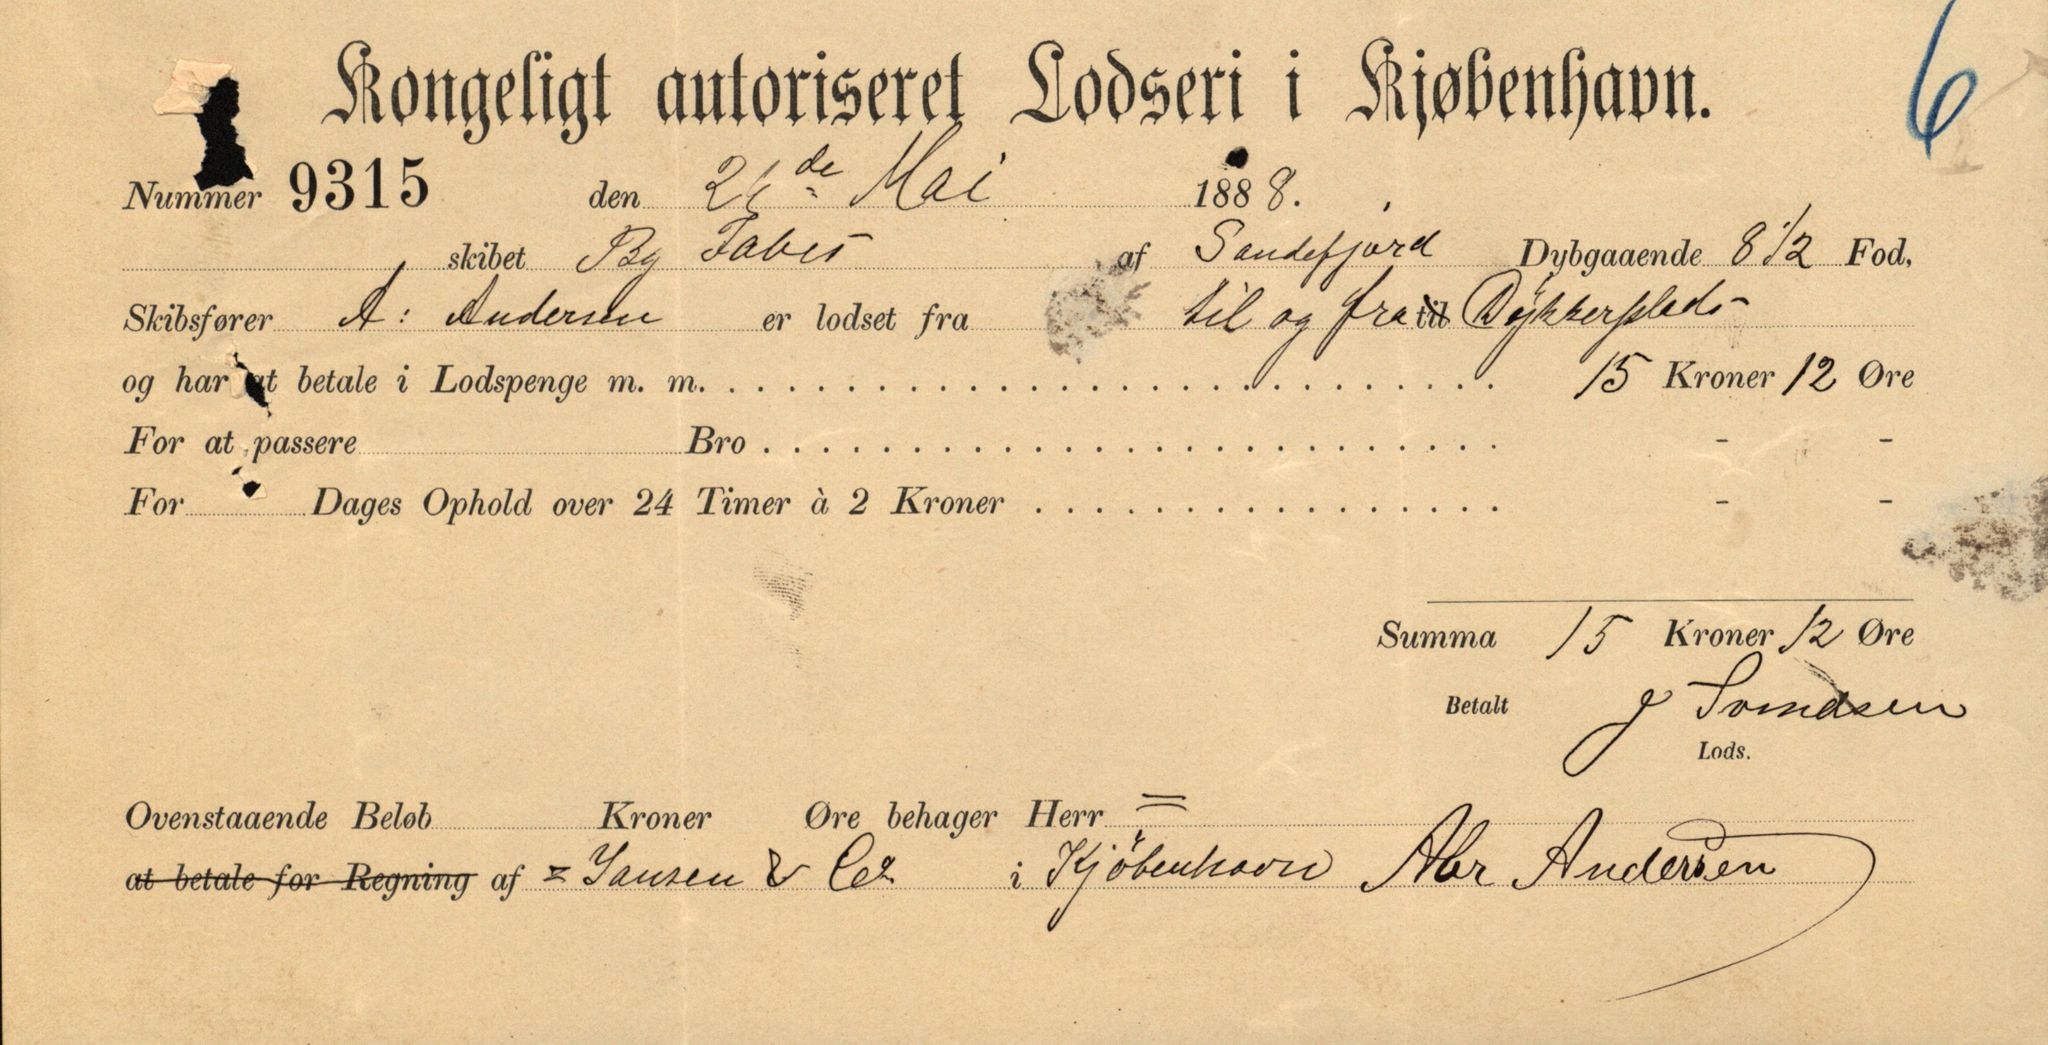 6
Kongeligt autoriseret Lodseri i Kjøbenhavn.
Nummer 9315 den 21de Mai 1888.
skibet Bg Tabes af Sandefjord Dybgaaende 8 1/2 Fod,
Skibsfører A: Andersen er lodset fra til og fra til Dykkerplads
og har at betale i Lodspenge m. m. 15 Kroner 12 Øre
For at passere Bro - -
For Dages Ophold over 24 Timer à 2 Kroner - -
Summa 15 Kroner 12 Øre
Betalt J Svendsen
Lods.
Ovenstaaende Beløb Kroner Øre behager Herr =
at betale for Regning af = Jansen & Co i Kjöbenhavn Abr Andersen